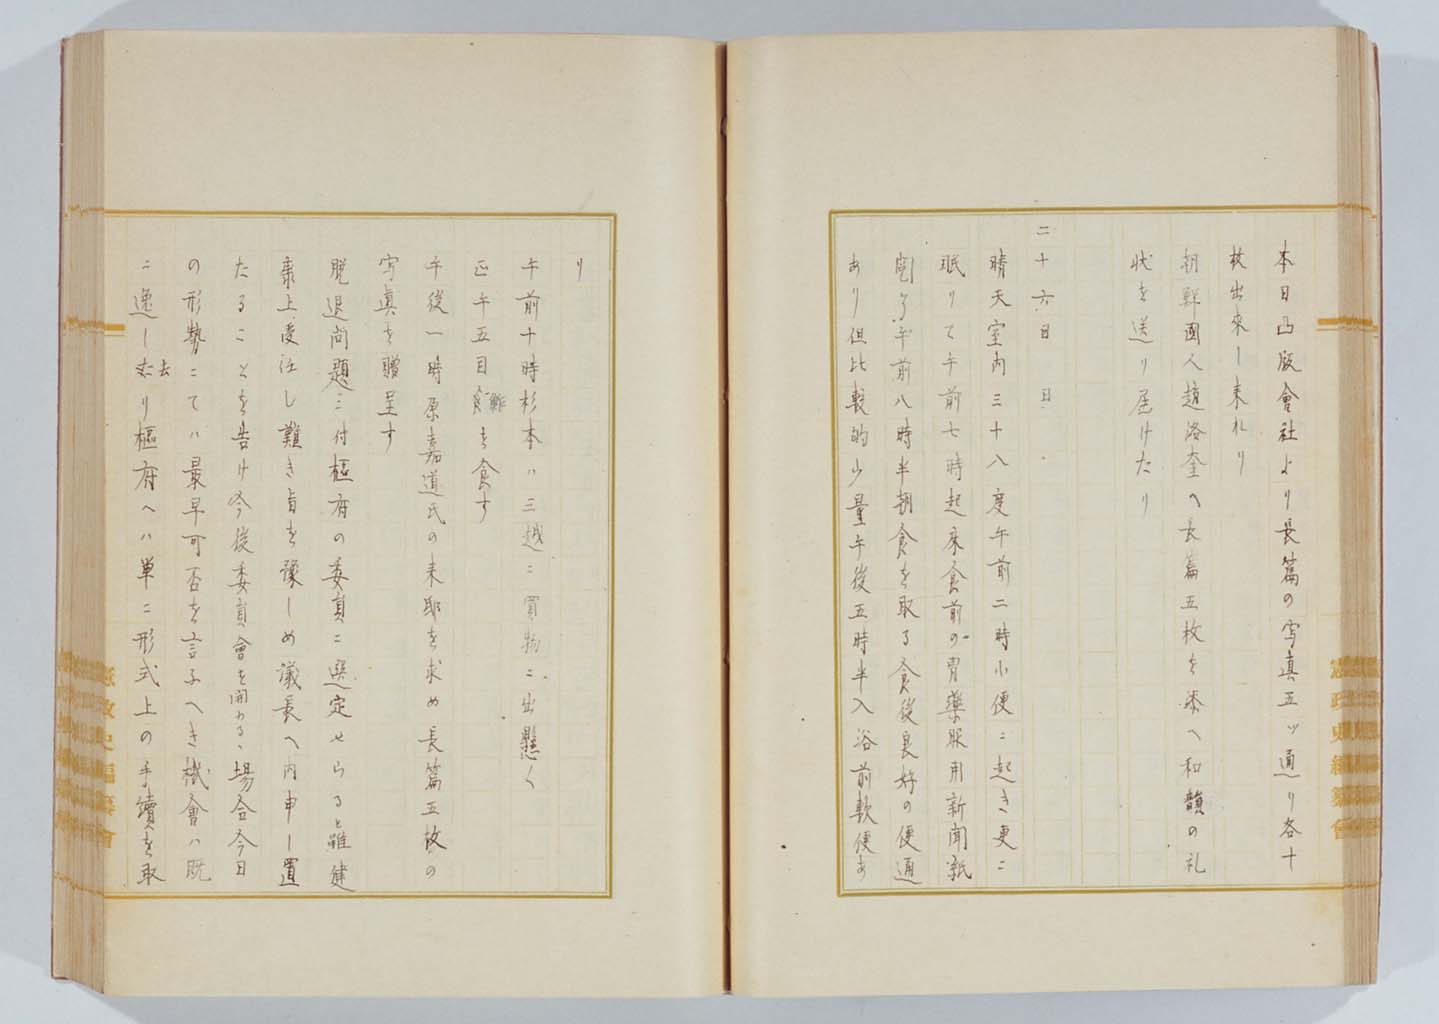 本日凸版會社より長篇の写真五ッ通り各十
枚出來し来れり
朝鮮国人趙洛奎へ長篇五枚を添へ和韻の礼
状を送り届けたり
二十六日　日
晴天室内三十八度午前二時小便ニ起き更ニ
眠りて午前七時起床食前の胃薬服用新聞紙
午前八時半朝食を取る食後良好の便通
あり但比較的少量午後五時半入浴前軟便あ
り
午前十時杉本ハ三越ニ買物ニ出懸く
正午五目鮓を食す
午後一時原嘉道氏の来邸を求め長篇五枚の
写眞を贈呈す
脱退問題ニ付樞府の委員ニ選定せらると雖健
康上受任し難き旨を豫しめ議長へ内申し置
たることを告け今後委員會を開わるゝ場合今日
の形勢ニてハ最早可否を言ふへき機會ハ既
ニ逸し去り樞府へハ単ニ形式上の手續を取
憲政史編纂會
憲政史編纂會